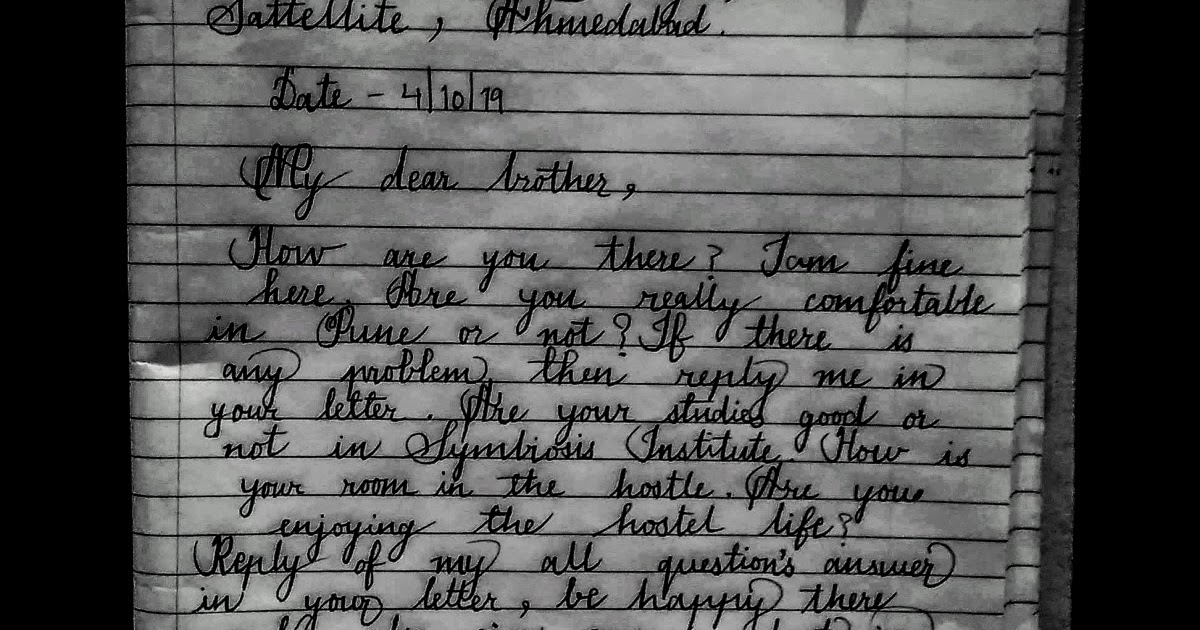 Sattellite, Ahmedabad.
Date - 4/10/19
My dear brother,
How are you there? I am fine
here. Are you really comfortable
in Pune or not? If there is
any problem, then reply me in
your letter. Are your studies good or
not in Symbiosis Institute. How is
your room in the hostle. Are you
enjoying the hostel life?
Reply of my all question's answer
in your letter, be happy there